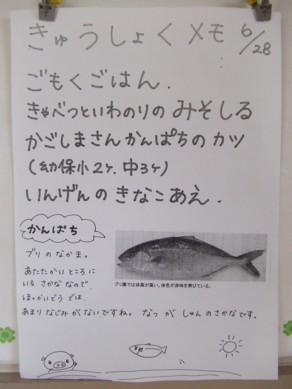 きゅうしょくメモ 6/28
ごもくごはん.
きゃべつといわのりの みそしる
かごしまさんかんぱちの カツ
(幼保小2ヶ. 中3ヶ)
いんげんの きなこあえ.
かんぱち
ブリ の なかま。
あたたかい ところ に
いる さかな なので
ほっかいどう では、
あまり なじみ が ない ですね。 なつ が しゅん の さかな です。
ブリ属では体高が高い。体色が赤味を帯びている。